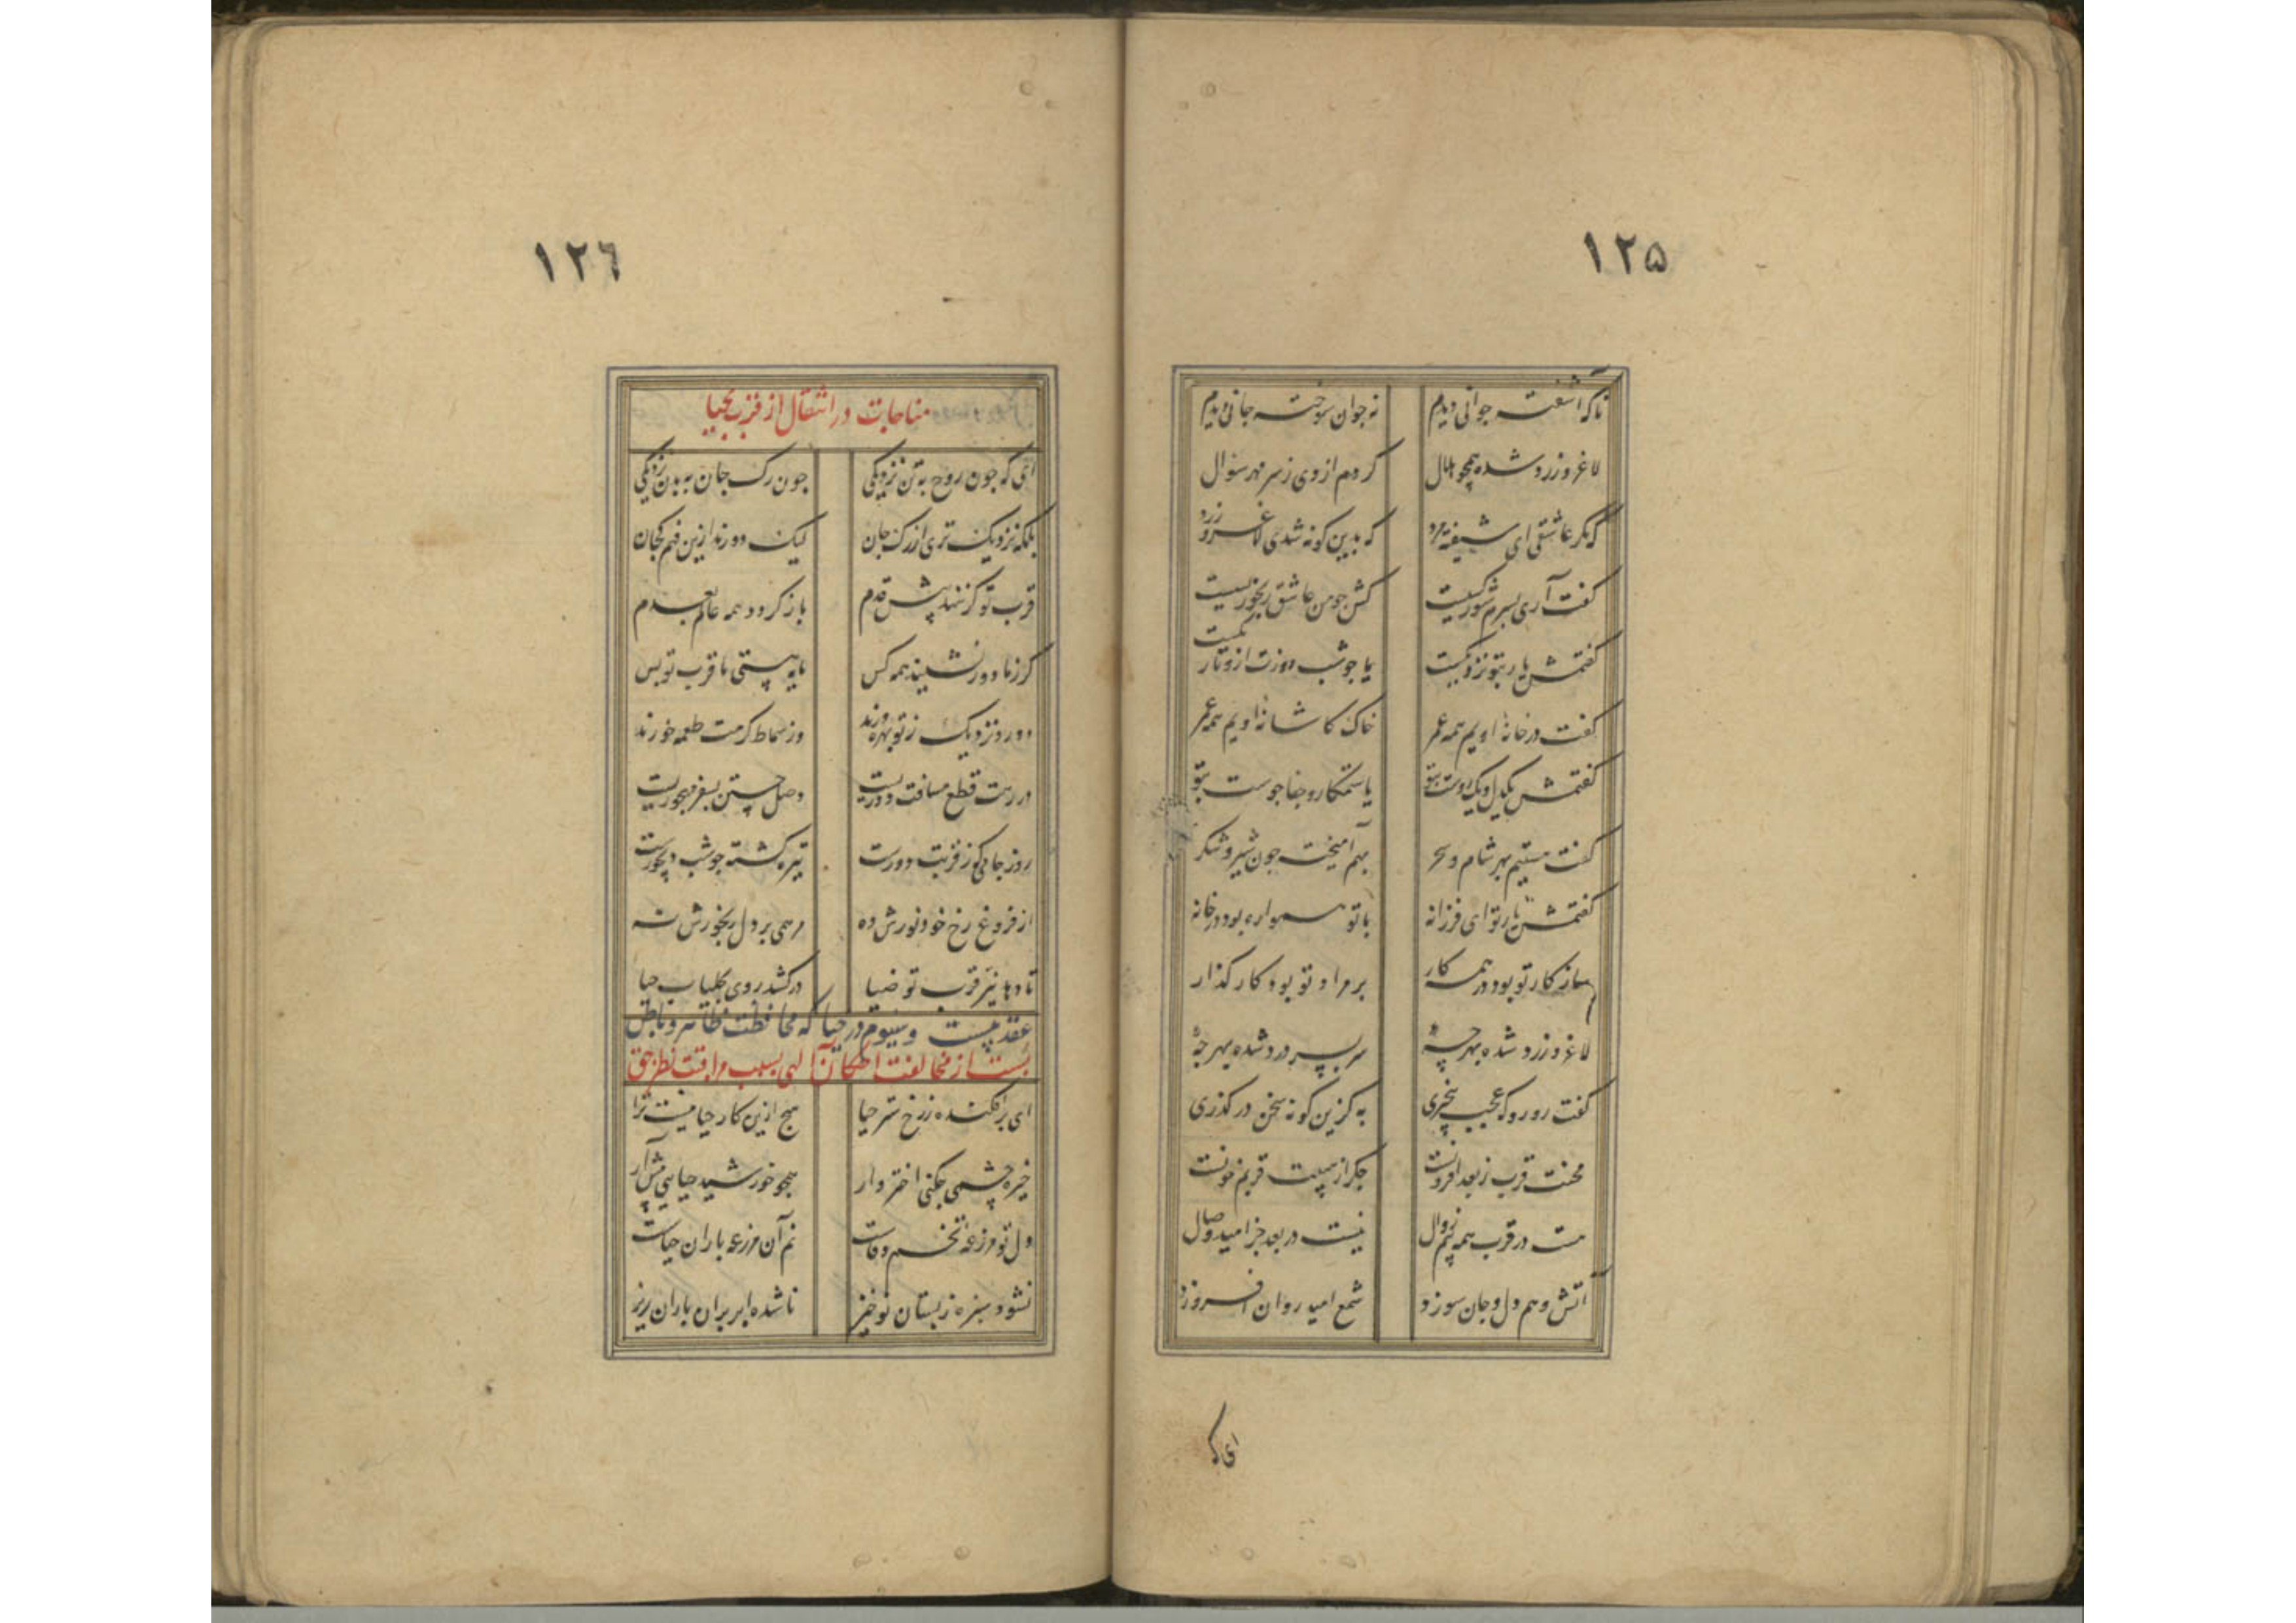 ١٢۵
ناکه آشفته جوانی دیدم نه جوان سوخته جانی دیدم
لاغر و زرد شده همچو هلال کردم از وی ز سر مهر سؤال
که مگر عاشقی ای شیفته مرد که بدین کونه شدی لاغر و زرد
کفت آری بسرم شور کسیست کش جو من عاشق رنجور بسیست
کفتمش یار بتو نزدیکست یا جو شب روزت ازو تاریکست
کفت در خانهٔ اویم همه عمر خاک کاشانهٔ اویم همه عمر
کفتمش یکدل و یکروست بتو یا ستمکار و جفاجوست بتو
کفت هستیم بهر شام و سحر بهم آمیخته جون شیر و شکر
کفتمش یار تو ای فرزانه با تو همواره بود در خانه
سازکار تو بود در همه کار بر مراد تو بود کار کذار
لاغر و زرد شده بهر چهٔ سر بسر درد شده بهر چهٔ
کفت رو رو که عجب بیخبری به کزین کونه سخن در کذری
محنت قرب ز بعد افزونست جکر از هیبت قربم خونست
هست در قرب همه بیم زوال نیست در بعد جز امید وصال
آتش بیم دل و جان سوزد شمع امید روان افروزد
ای که
١٢٦
مناجات در انتقال از قرب بحیا
ای که جون روح به تن نزدیکی جون رک جان به بدن نزدیکی
بلکه نزدیک تری از رک جان لیک دورند ازین فهم کجان
قرب تو کر ننهد پیش قدم باز کردد همه عالم بعدم
کر ز ما دور نشیند همه کس مایهٔ هستی ما قرب تو بس
دور و نزدیک ز تو بهره ورند وز سماط کرمت طعمه خورند
در رهت قطع مسافت دوریست وصل جستن بسفر مهجوریست
روز جامی کو ز قربت دورست تیره کشته جو شب دیجورست
از فروغ رخ خود نورش ده مرهمی بر دل رنجورش نه
تا دهد نیر قرب تو ضیا در کشد روی بجلباب حیا
عقد بیست و سیوم در حیا که محافظت ظاهر و باطن
است از مخالفت احکام الهی بسبب مراقبت نظر حق
ای برافکنده ز رخ ستر حیا هیج ازین کار حیا نیست ترا
خیره چشمی جکنی اختر وار همچو خورشید حیایی پیش آر
دل تو مزرعهٔ تخم وفاست نم آن مزرعه باران حیاست
نشود سبزه ز بستان نو خیز ناشده ابر بران باران ریز